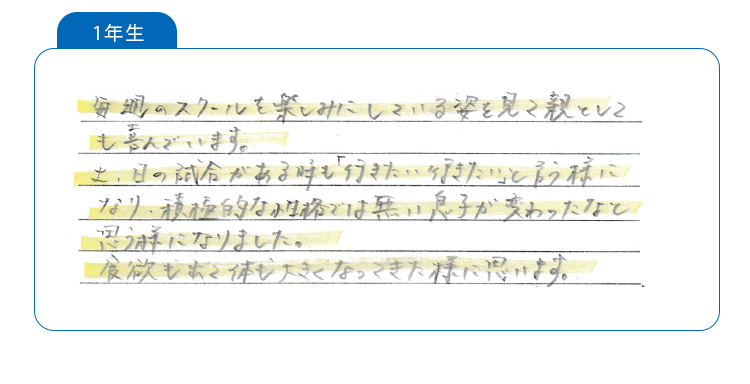 1年生
毎週のスクールを楽しみにしている姿を見て親として
も喜んでいます。
土、日の試合がある時も「行きたい行きたい」と言う様に
なり、積極的な性格では無い息子が変わったなと
思う様になりました。
食欲も出て体も大きくなってきた様に思います。